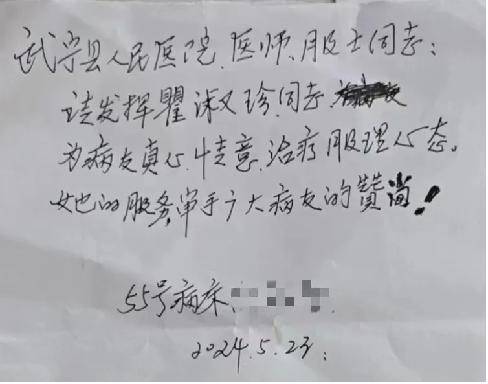 武宁县人民医院、医师、服士同志:
请发挥瞿淑文珍同志
为病友真心、情意、治疗服理心态。
她的服务审手广大病友的赞当!
55号病床、
2024.5.23: